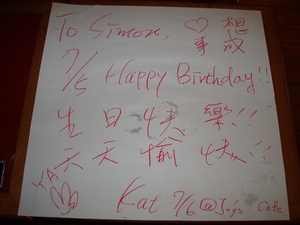 To Simon, ♡想
事成
7/5 Happy Birthday!!
生日快樂!!
天天愉快!!
YA
Kat 7/6@Joys Cafe